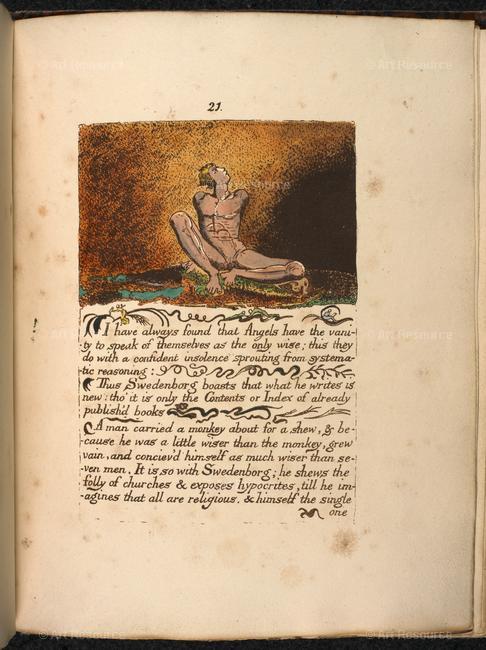 21.
I have always found that Angels have the vani-
ty to speak of themselves as the only wise; this they
do with a confident insolence sprouting from systema-
-tic reasoning:
Thus Swedenborg boasts that what he writes is
new: tho' it is only the Contents or Index of already
publish'd books
A man carried a monkey about for a shew, & be-
-cause he was a little wiser than the monkey, grew
vain, and conciev'd himself as much wiser than se-
-ven men. It is so with Swedenborg; he shews the
folly of churches & exposes hypocrites, till he im-
-agines that all are religious. & himself the single
one
© Art Resource
© Art Resource
© Art Resource
© Art Resource
© Art Resource
© Art Resource